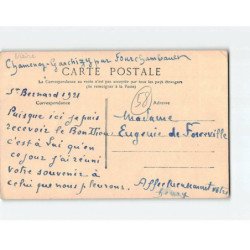 Chamenay Garchizy par Fourchambault
CARTE POSTALE
La Correspondance au recto n'est pas acceptée par tous les pays étrangers
(Se renseigner à la Poste)
Correspondance
Adresse
58
St Bernard 1921
Puisque ici je puis
recevoir le
c'est à Vai qu'en
ce jour j'ai réuni
votre souvenir à
celui que nous pleurons.
Madame
Eugénie de Forceville
Affectueusement votre